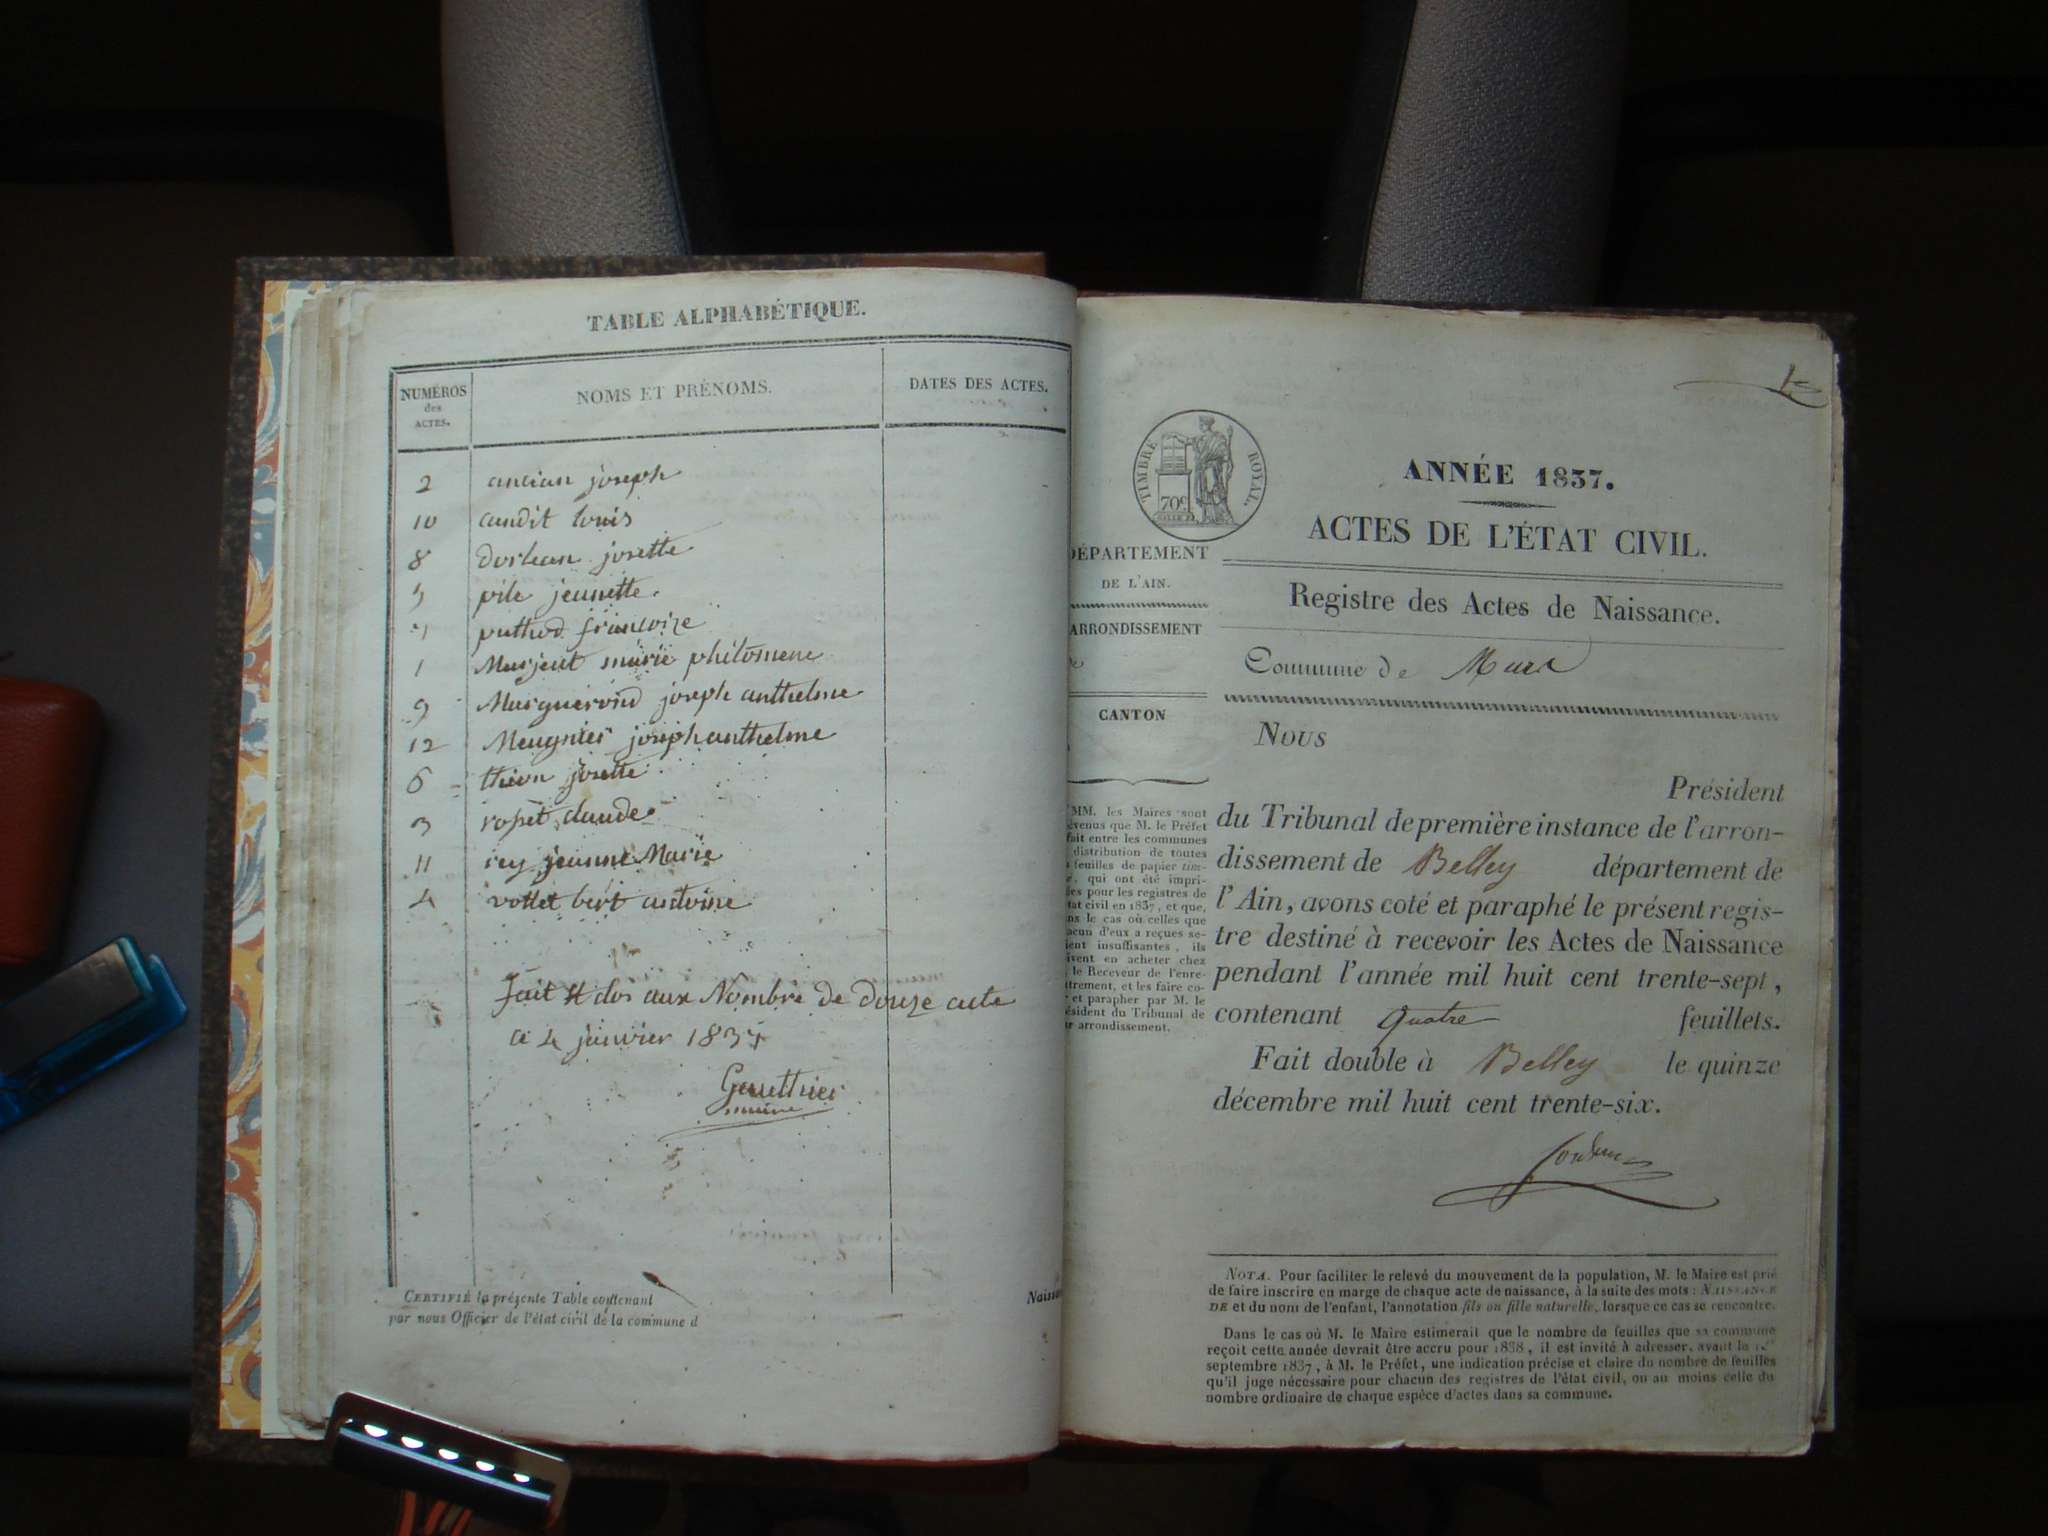 TABLE ALPHABÉTIQUE.
NUMÉROS
des
ACTES.
NOMS ET PRÉNOMS.
DATES DES ACTES.
2 ancian joseph
10 candit louis
8 dorlean josette
5 pile jeunette.
7 puthod françoize
1 Marjeut marie philomene
9 Marguerond joseph anthelme
12 Meugnier joseph anthelme
6 thion josette
3 ropet claude
11 rey jeanne Marie
4 vollet bert antoine
fait et clos aux Nombre de douze acte
a 4 janvier 1837
Gauthier
maire
CERTIFIÉ la présente Table contenant
par nous Officier de l'état civil de la commune d
Naissa
1er
TIMBRE ROYAL
70c
ANNÉE 1837.
ACTES DE L'ÉTAT CIVIL.
Registre des Actes de Naissance.
Commune de Murs
DÉPARTEMENT
DE L'AIN.
ARRONDISSEMENT
CANTON
MM. les Maires sont
évenus que M. le Préfet
fait entre les communes
distribution de toutes
feuilles de papier tim-
qui ont été impri-
ées pour les registres de
tat civil en 1837, et que,
ns le cas où celles que
acun d'eux a reçues se-
ient insuffisantes, ils
ivent en acheter chez
le Receveur de l'enre-
trement, et les faire co-
r et parapher par M. le
ésident du Tribunal de
ur arrondissement.
NOUS
Président
du Tribunal de première instance de l'arron-
dissement de Belley département de
l'Ain, avons coté et paraphé le présent regis-
tre destiné à recevoir les Actes de Naissance
pendant l'année mil huit cent trente-sept,
contenant quatre feuillets.
Fait double à Belley le quinze
décembre mil huit cent trente-six.
NOTA. Pour faciliter le relevé du mouvement de la population, M. le Maire est prié
de faire inscrire en marge de chaque acte de naissance, à la suite des mots : NAISSANCE
DE et du nom de l'enfant, l'annotation fils ou fille naturelle, lorsque ce cas se rencontre.
Dans le cas où M. le Maire estimerait que le nombre de feuilles que sa commune
reçoit cette année devrait être accru pour 1838, il est invité à adresser, avant le 1er
septembre 1837, à M. le Préfet, une indication précise et claire du nombre de feuilles
qu'il juge nécessaire pour chacun des registres de l'état civil, ou au moins celle du
nombre ordinaire de chaque espèce d'actes dans sa commune.